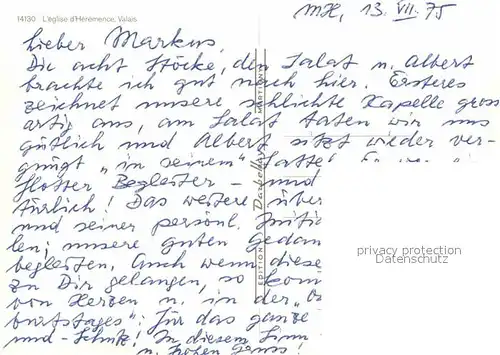 14130 L'église d'Hérémence, Valais
MH, 13. VII. 75
Lieber Markus,
Die acht Stöcke, den Salat u. Albert
brachte ich gut nach hier. Ersteres
zeichnet unsere schlichte Kapelle gross
artig aus, am Salat taten wir uns
gütlich und Albert sitzt wieder ver-
gnügt „in seinem"
flotter Begleiter – und
türlich! Das weitere über
und seiner persönl. Initia
len; unsere guten Gedan
begleiten. Auch wenn diese
zu Dir gelangen, so kom
von Herzen u. in der
burtstages": für das ganze
und - Schutz! In diesem Sinn
u. frohen Gruss!
EDITION Darbellay MARTIGNY
privacy protection
Datenschutz